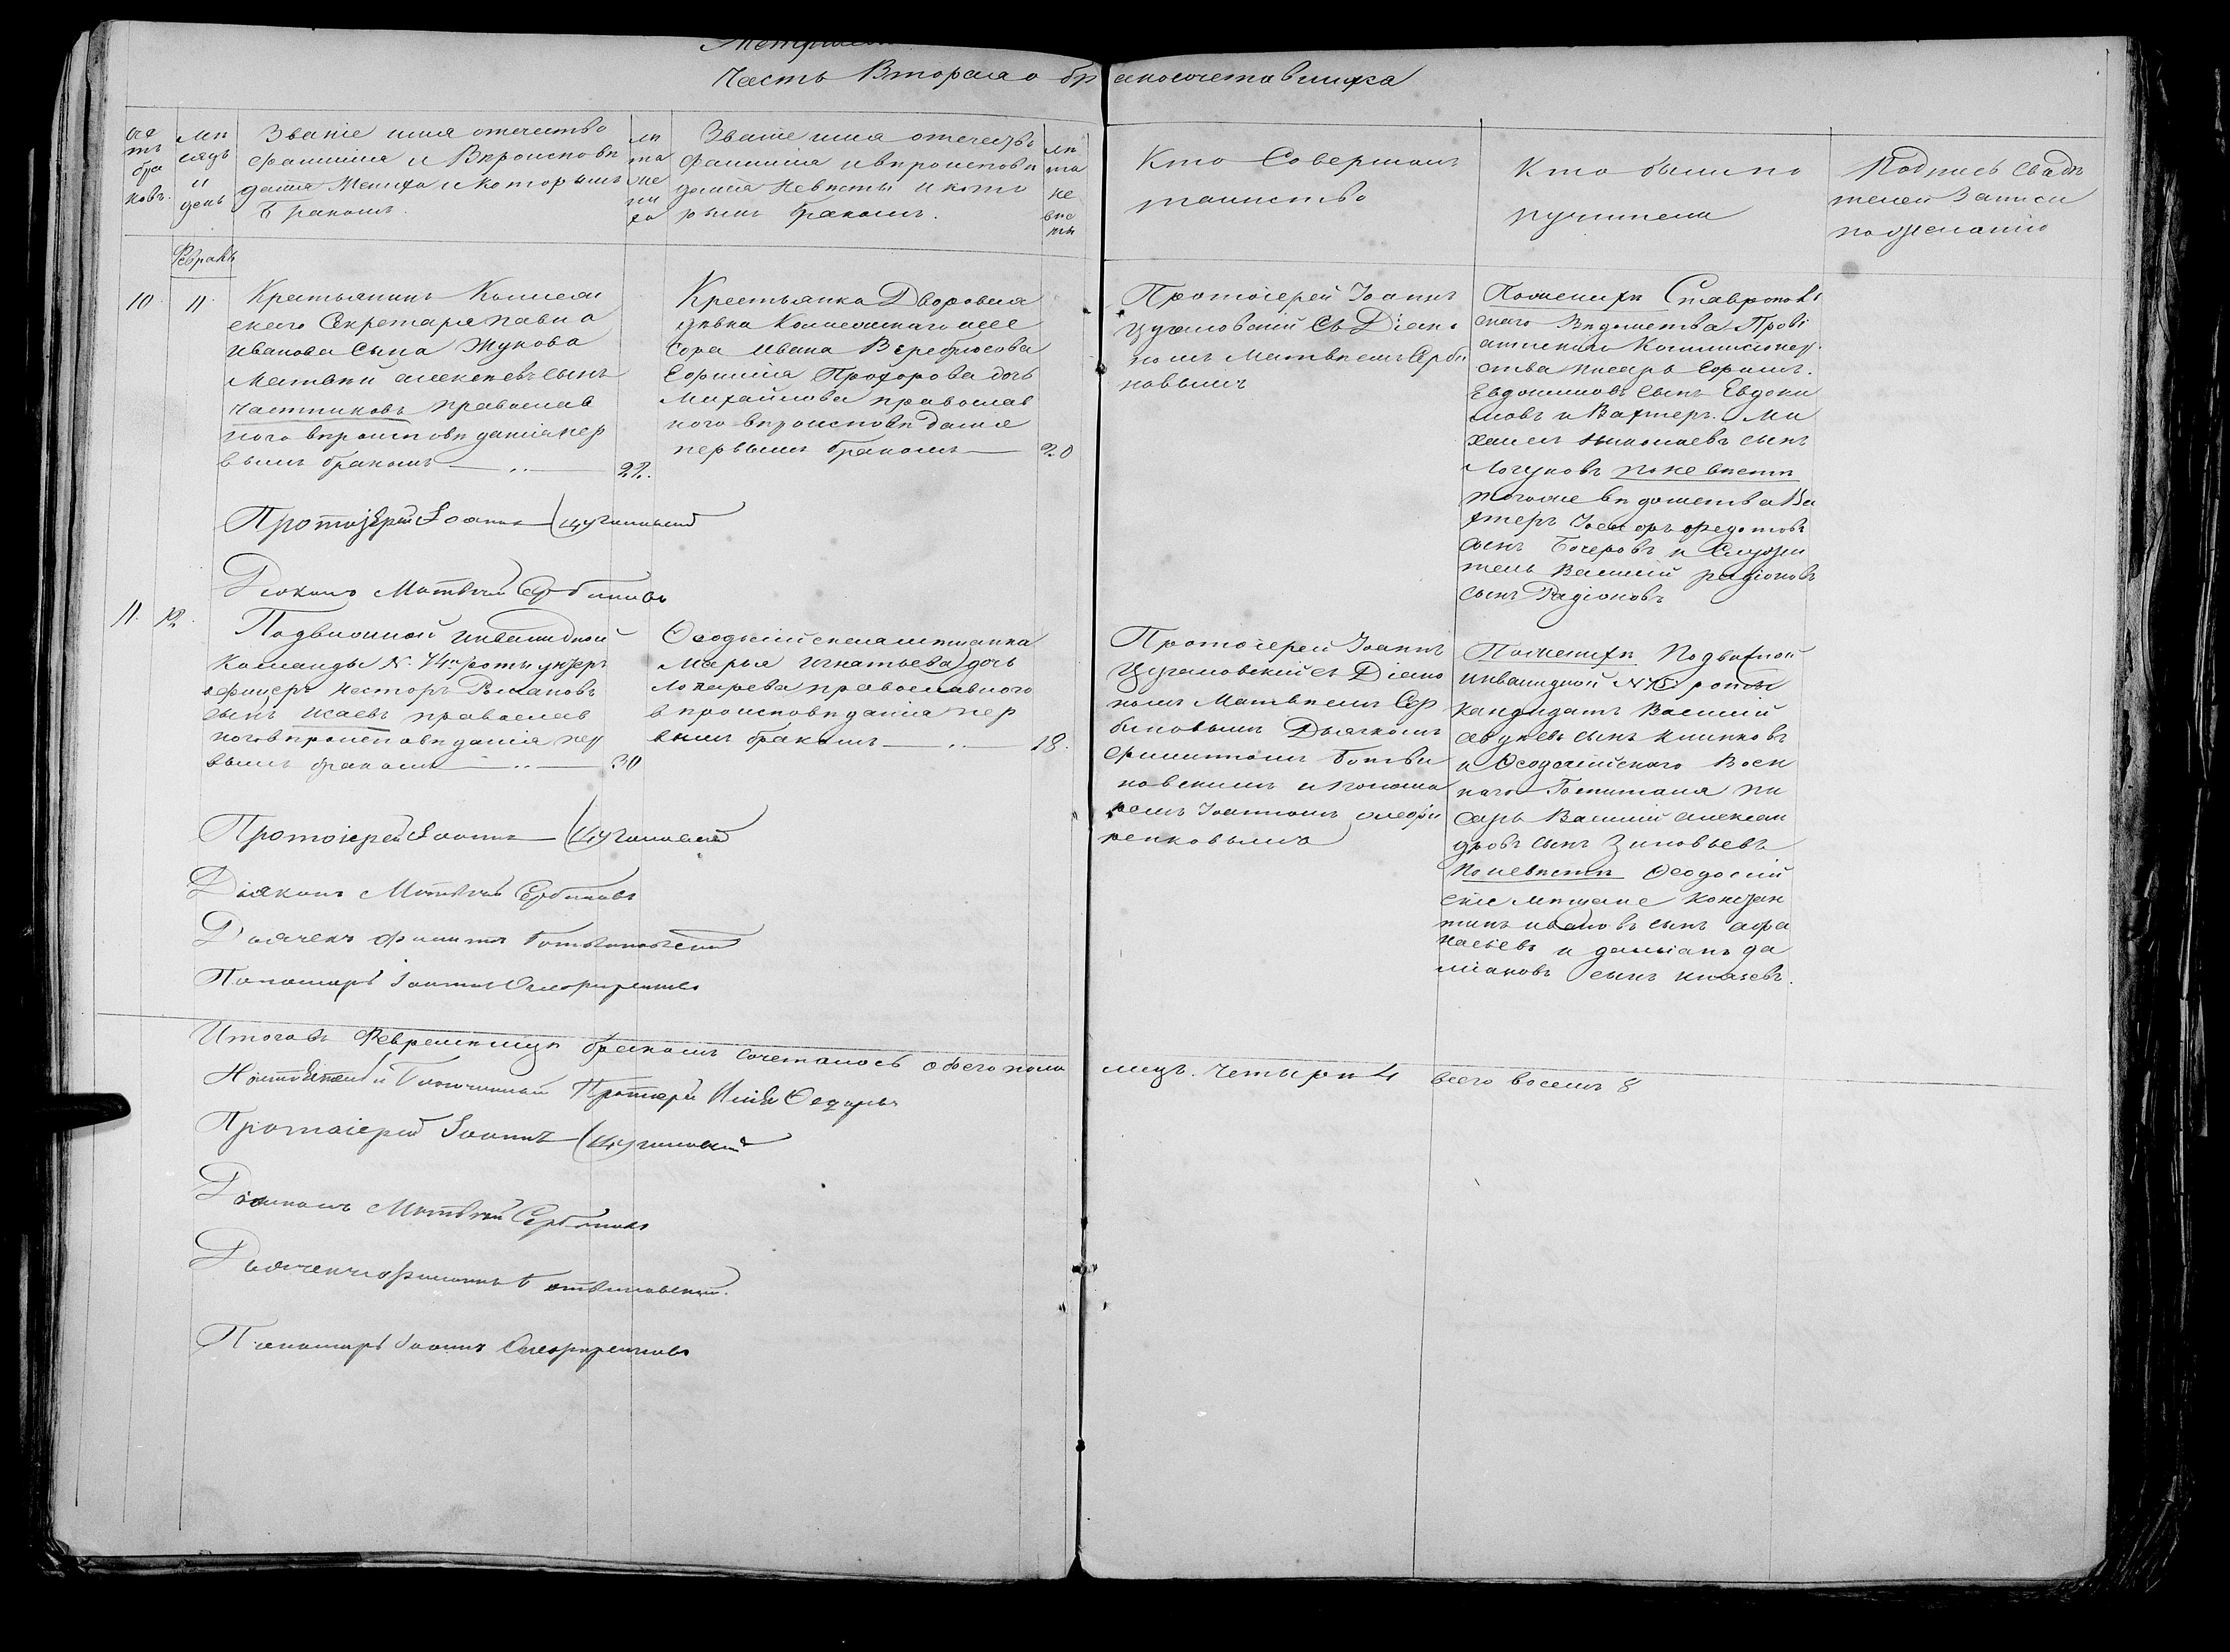 Часть Вторая о бракосочетавшихся
Счетъ браковъ.
Мѣсяцъ и день
Званіе имя отечество
фамилія и вѣроисповѣ
данія Жениха и которымъ
Бракомъ.
лѣта жениха
Званіе имя отечество
фамилія и вѣроисповѣ
данія Невѣсты и кото
рымъ бракомъ.
лѣта невѣсты
Кто Совершалъ
таинство
Кто были по
ручители
Подпись свидѣ
телей Записи
по желанію
Февраль
10 11
Крестьянинъ Коллеж
скаго Секретаря Павла
Иванова Сына Жукова
Матвѣй Алексѣевъ сынъ
Частниковъ православ
ного вѣроисповѣданія пер
вымъ бракомъ 22.
Крестьянка Дворовая
дѣвка Колежскаго асее
сора Ивана
Прохорова дочь
Михайлова православ
ного вѣроисповѣданія
первымъ бракомъ 20
Протоіерей Іоаннъ
съ Діако
номъ Матвѣемъ Серби
новымъ
По женихѣ Ставрополь
скаго Вѣдомства Прові
антскаго Коммисіонер
ства писарь
Евдокимовъ сынъ Евдоки
мовъ и Вахтеръ Ми
хаилъ Николаевъ сынъ
Логуновъ по невѣстѣ
тогоже вѣдомства Ва
хтеръ Федотовъ
сынъ Бочеровъ и Служи
тель Василій Радіоновъ
сынъ Радіоновъ
Протоіерей Іоаннъ
Діаконъ Матвѣй Сербиновъ
11. 12.
Подвижной инвалидной
Команды № 74й роты унтеръ
офицеръ Несторъ Романовъ
сынъ Исаевъ православ
ного вѣроисповѣданія пер
вымъ бракомъ 30
Феодосійская мѣщанка
Марья Игнатьева дочь
Лопарева православного
вѣроисповѣданія пер
вымъ бракомъ 18.
Протоіерей Іоаннъ
съ Діако
номъ Матвѣемъ Сер
биновымъ Дьячкомъ
Филиппомъ Ботви
новскимъ и понома
ремъ Іоанномъ Олефи
ренковымъ
По женихѣ Подвижной
инвалидной № роты
Кандидатъ Василій
сынъ Климковъ
и Феодосійскаго Воен
наго Гошпиталя пи
сарь Василій Алексан
дровъ сынъ Зиновьевъ
По невѣстѣ Феодосій
скіе мѣщане Констан
тинъ Ивановъ сынъ Афа
насьевъ и Даміанъ Да
міановъ сынъ Князевъ.
Протоіерей Іоаннъ
Діаконъ Матвѣй Сербиновъ
Дьячекъ Филиппъ Ботвиновскій
Пономарь Іоаннъ Олефиренковъ
Итого въ Февралѣ мцѣ бракомъ сочеталось обоего пола лицъ. четыри 4 всего восемь 8
Протоіерей
Протоіерей Іоаннъ
Діаконъ Матвѣй Сербиновъ
Дьячекъ Филиппъ Ботвиновскій.
Пономарь Іоаннъ Олефиренковъ